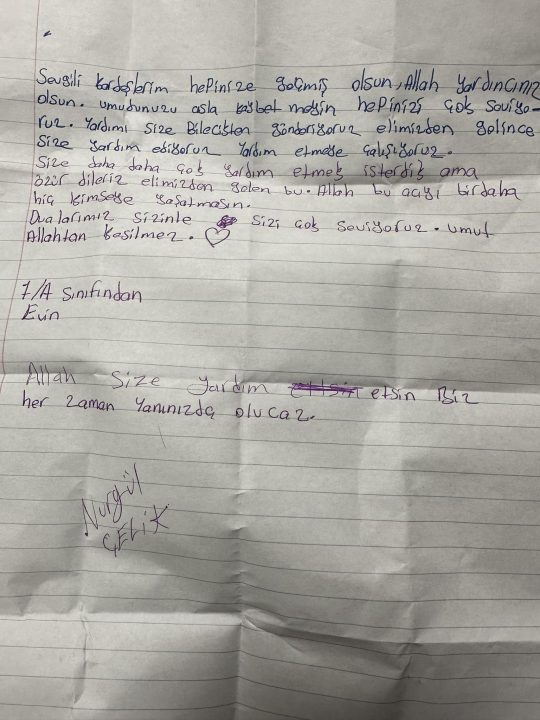 Sevgili kardeşlerim hepinize geçmiş olsun, Allah yardımcınız
olsun. umudunuzu asla kaybetmeyin hepinizi çok seviyo-
ruz. Yardımı size Bilecikten gönderiyoruz elimizden gelince
size yardım ediyoruz yardım etmeye çalışıyoruz.
Size daha daha çok yardım etmek isterdik ama
özür dileriz elimizden gelen bu. Allah bu acıyı birdaha
hiç kimseye yaşatmasın.
Dualarımız sizinle sizi çok seviyoruz. umut
Allahtan kesilmez.
7/A sınıfından
Evin
Allah size yardım etsin Biz
her zaman yanınızda olucaz.
Nurgül
ÇELİK